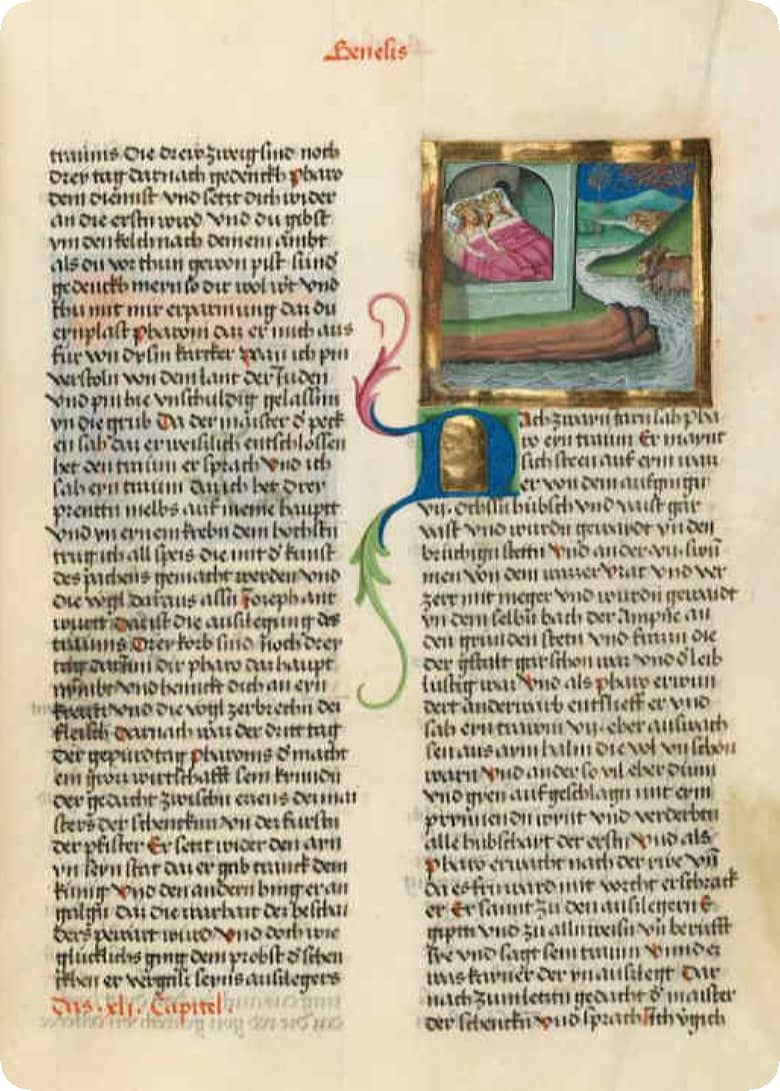 Genesis
traums Die drey zweig sind noch
drey tag darnach gedenckh pharo
deini dienist vnd setzt dich wider
an die erstn wird vnd du gibst
ym den kelch nach deinem ambt
als du vor thun gewon pist sund
gedenckh mein so dir wol ist vnd
thu mit mir erparmung das du
einplast pharoni das er mich aus
für von dysin karcker wan ich pin
verstoln von dem lant der Juden
vnd pin hie vnschuldig gelassin
yn die grub Da der maister d peck
en sah das er weislich entschlossen
het den traum er sprach vnd ich
sah eyn traum das ich het drey
prenttn melbs auf meine haupt
vnd yn eynem krebn dem hochstn
trug ich all speis die mit d kunst
des pachens gemacht werden vnd
die vogl daraus assn Joseph ant
wurtt das ist die auslegung des
traums Drey korb sind noch drey
tag dar dir pharo das haupt
nymbt vnd henckt dich an eyn
krewtz vnd die vogl zerbrechn dei
fleisch Darnach was der dritt tag
der gepurd tag pharonis d macht
ein gross wirtschafft sein kindn
der gedacht zwischn eaens des mai
sters der schencken vn des furstn
der pfister Er setzt wider den ayn
yn seyn stat das er geb tranck dem
kunig vnd den andern hing er an
galgn das die warhait der beschai
ders pewart wurd vnd doch wie
glucklichs ging dem probst d schen
ckhen er vergass seyns auslegers
Das .xlj. Capitel.
Nach zwayn iarn sah pha
ro eyn traum Er maynt
sich steen auf eym was
er von dem aufgingn
vij. ochssn hubsch vnd vaist gar
vaist vnd wurdn gewaidt yn den
bruchign stetn vnd ander vij swu
men von dem wasser vrat vnd ver
zert mit meger vnd wurdn gewaidt
yn dem selbn bach der Ampne an
den gruenden stetn vnd frassn die
der gstalt gar schon was vnd d leib
lustig was vnd als pharo erwun
dert anderwarb entslieff er vnd
sah eyn trawm vij. eher auswach
sen aus aym halm die vol vn schon
warn vnd ander so vil eher dunn
vnd gren aufgeschlagn mit eym
prynnenden wint vnd verderbtn
alle hubschait der erstn vnd als
pharo erwacht nach der rwe vn
da es frw ward mit vorcht erschrack
er Er sannt zu den auslegern E
gipti vnd zu alln weisn vn berufft
sye vnd sagt sein traum vnd es
was kayner der yn auslegt Dar
nach zum letztn gedacht d maister
der schenckn vnd sprach Ich vgich